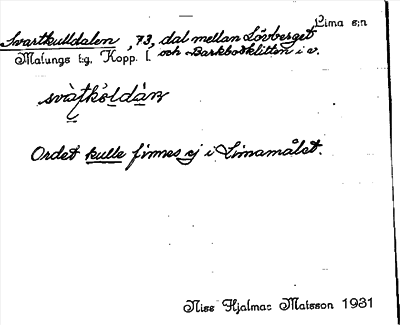 Lima s:n
Svartkulldalen, 73, dal mellan Lövberget
Malungs t:g, Kopp. l. och Barkbodklitten i v.
svàtkòldán
Ordet kulle finnes ej i Limamålet.
Nils Hjalmar Matsson 1931